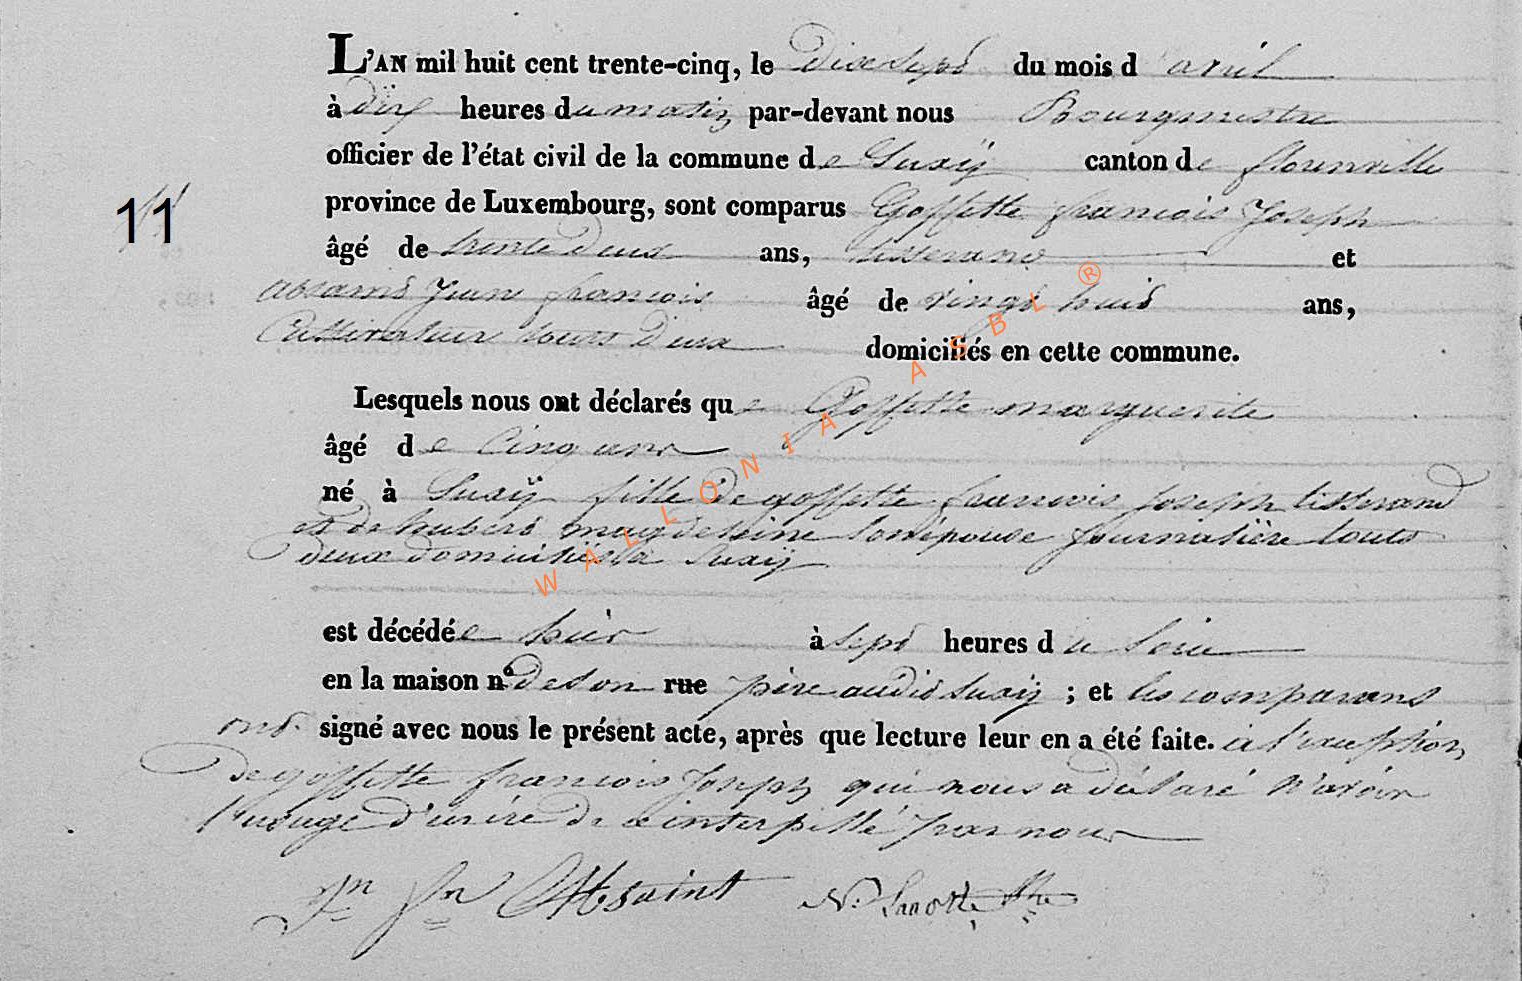 L'AN mil huit cent trente-cinq, le dix sept du mois d'avril
à dix heures du matin par-devant nous Bourgmestre
officier de l'état civil de la commune de Suxÿ canton de florenville
11
province de Luxembourg, sont comparus Goffette francois Joseph
âgé de trente deux ans, tisserand et
absaint Jean francois âgé de vingt huit ans,
Cultivateur touts deux domiciliés en cette commune.
Lesquels nous ont déclarés que Goffette marguerite
âgé de Cinq ans
né à Suxÿ fille de goffette francois Joseph tisserand
et de hubert magdeleine son épouse Journalière touts
deux domiciliés à Suxÿ
est décédée hier à sept heures du soir
en la maison nº de son rue père audit Suxÿ ; et les comparans
ont signé avec nous le présent acte, après que lecture leur en a été faite. à l'exception
de goffette francois Joseph qui nous a déclaré n'avoir
l'usage d'ecrire de ce interpellé par nous
Jn fn Absaint N. Lanotte
WALLONIA ASBL ®